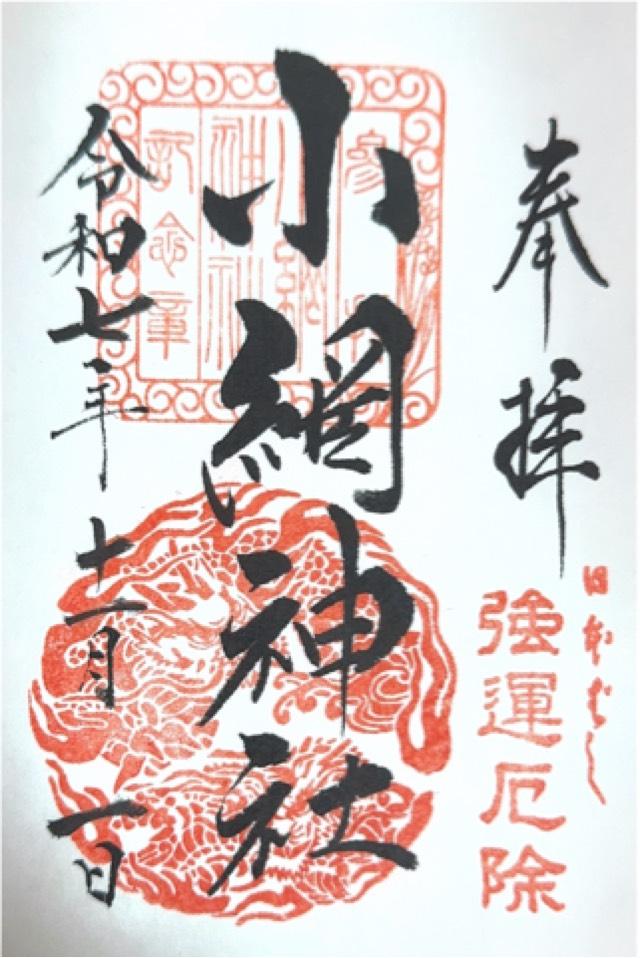 奉拝
日本ばし
強運厄除
小網神社
記念章
令和七年十一月一日